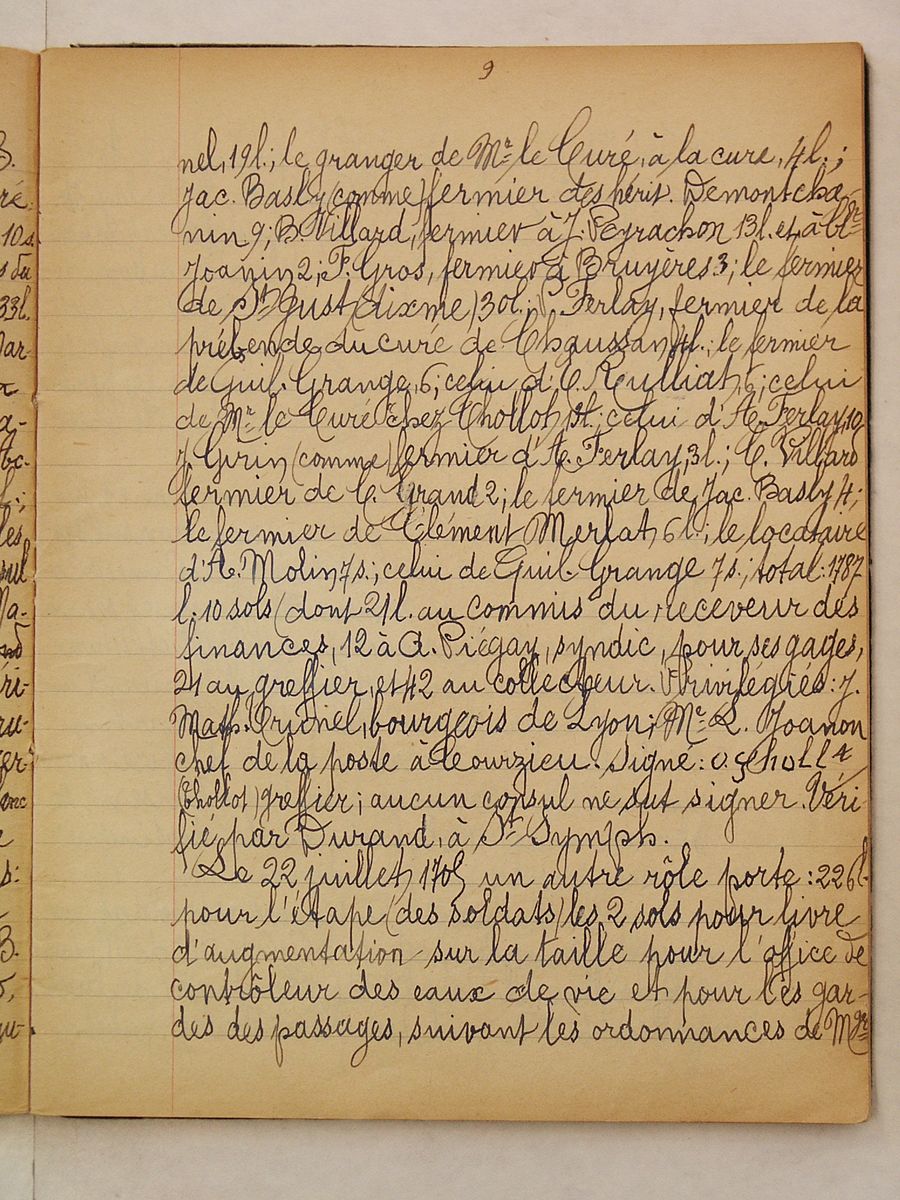 9
nel, 19 l.; le granger de Mr le Curé, à la cure, 4 l.;
Jac. Basly (comme) fermier des hérit. Demontcha-
nin 9; B. Villard, fermier à J. Peyrachon 13 l. et à
Joanin 2; F. Gros, fermier à Bruyères 3; le fermier
de St Just (dixme) 30 l.; Ferlay, fermier de la
prébende du curé de Chaussan, 4 l.; le fermier
de Guil. Grange, 6; celui d'E. Rulliat, 6; celui
de Mr le Curé chez Chollot, celui d'A. Ferlay, 10
J Girin (comme) fermier d'A. Ferlay, 3 l.; C. Villard
fermier de C. Grand 2; le fermier de Jac. Basly 4;
le fermier de Clément Merlat, 6 l.; le locataire
d'A. Molin, 7 s.; celui de Guil. Grange 7 s.; total: 1787
l. 10 sols (dont 21 l. au commis du receveur des
finances, 12 à A. Piégay, syndic, pour ses gages,
21 au greffier, et 42 au collecteur. Privilégiés: J.
Math. Crionel, bourgeois de Lyon; Mr L. Joanon
chef de la poste à Courzieu. Signé:
(Chollot) greffier; aucun consul ne sut signer. Véri-
fié par Durand, à St Symph.
Le 22 juillet, 1705 un autre rôle porte: 226 l.
pour l'étape (des soldats) les 2 sols pour livre
d'augmentation sur la taille pour l'office de
contrôleur des eaux de vie et pour les gar-
des des passages, suivant les ordonnances de Mgr